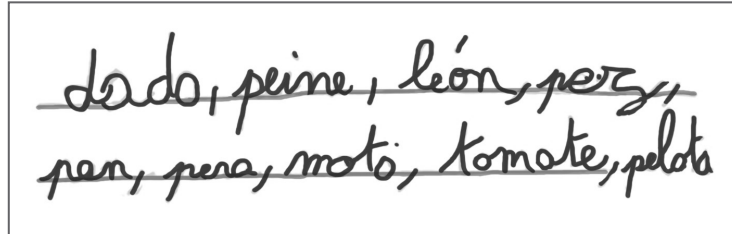 dado, peine, león, pez,
pan, pera, moto, tomate, pelota